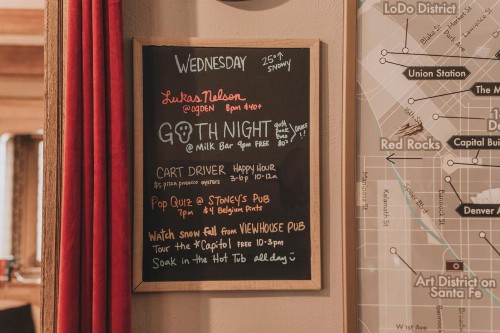 WEDNESDAY 25°↑ SNOWY
Lukas Nelson
@OGDEN 8pm $40+
GOTH NIGHT goth punk 80's DANCE!!
@ Milk Bar 9pm FREE
CART DRIVER HAPPY HOUR
$5 pizza prosecco oysters 3-6p 10-12a
Pop Quiz @ STONEY'S PUB
7pm $4 Belgium Pints
Watch snow fall from VIEWHOUSE PUB
Tour the *Capitol FREE 10-3pm
Soak in the Hot Tub all day
LoDo District
Market St
Union Station
The M
Red Rocks
Capital Bui
Denver A
Mariposa St
Kalamath St
Bannock St
Art District on
Santa Fe
W 1st Ave